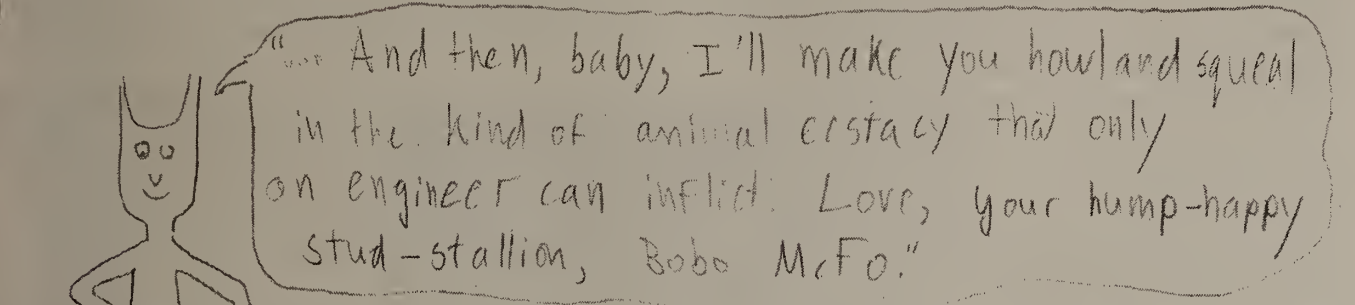 "... And then, baby, I'll make you howl and squeal
in the kind of animal ecstacy that only
an engineer can inflict. Love, your hump-happy
stud-stallion, Bobo McFo."